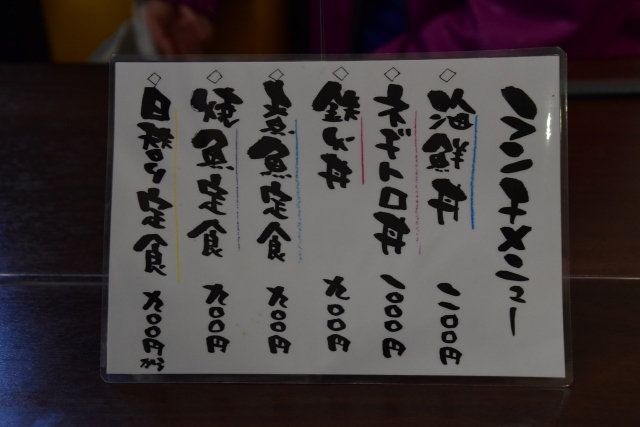 ランチメニュー
◇海鮮丼 一一〇〇円
◇ネギトロ丼 一〇〇〇円
◇鉄火丼 九〇〇円
◇煮魚定食 九〇〇円
◇焼魚定食 九〇〇円
◇日替り定食 九〇〇円から